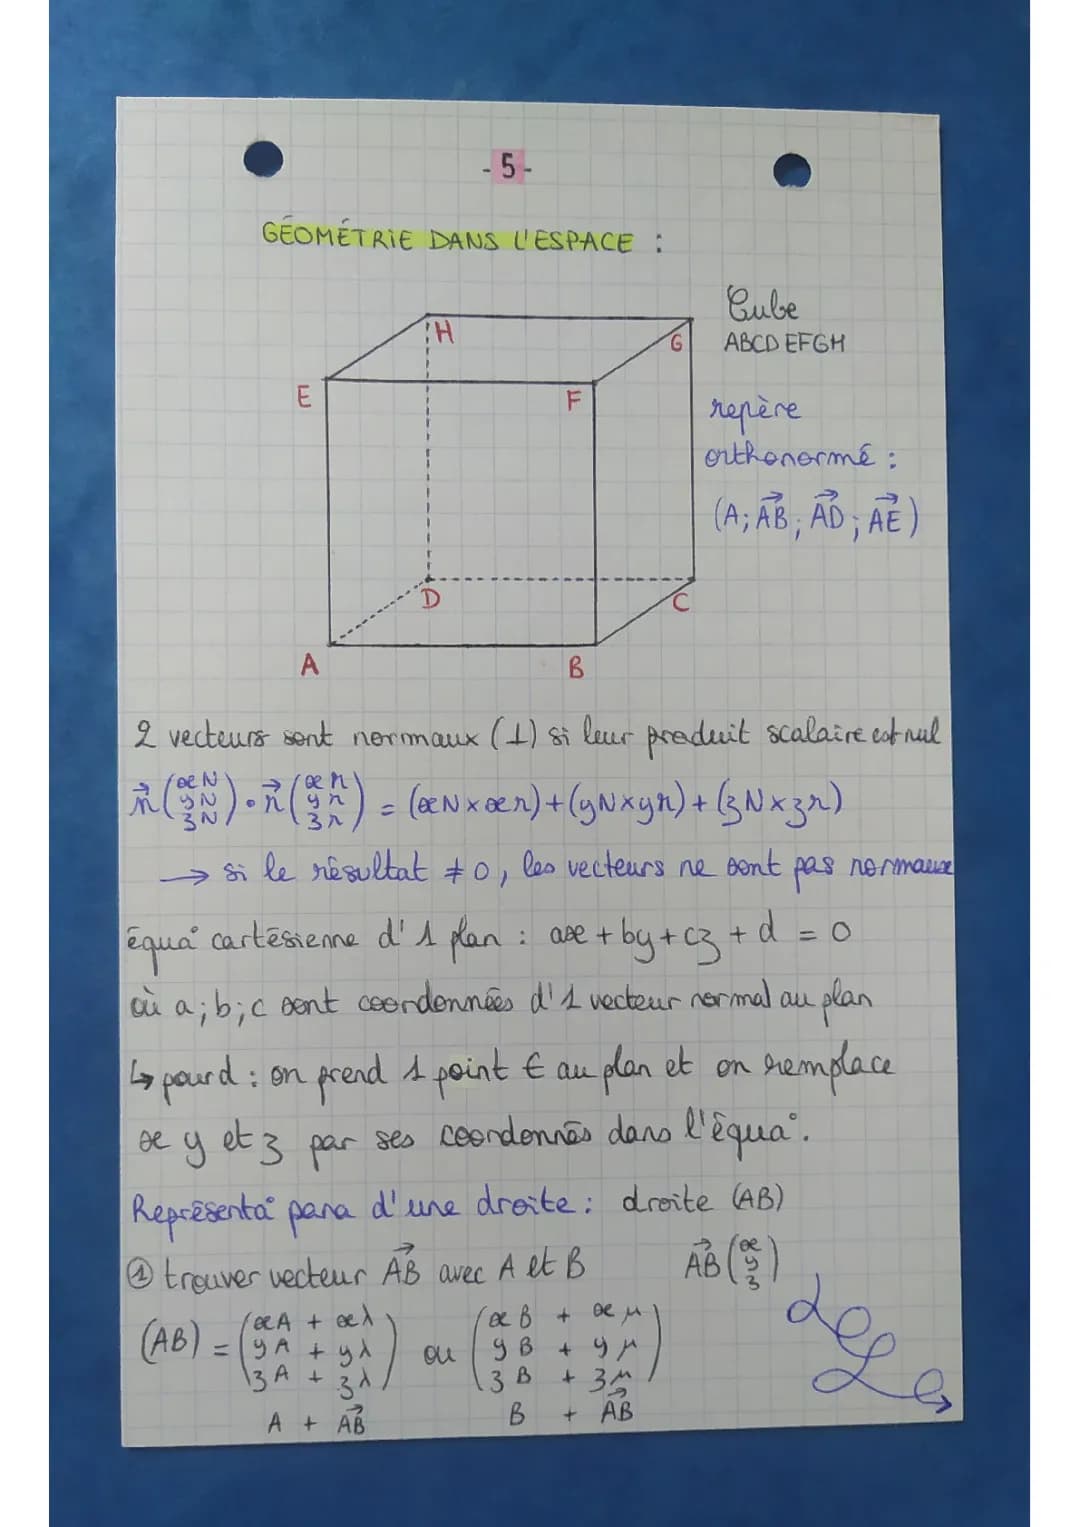 - 5 -
GÉOMÉTRIE DANS L'ESPACE :
Cube
ABCDEFGH
repère
orthonormé :
(A; AB→; AD→; AE→)
H
G
E
F
D
C
A
B
2 vecteurs sont normaux (⊥) si leur produit scalaire est nul
n→(xN yN zN) • n→(xn yn zn) = (xN × xn) + (yN × yn) + (zN × zn)
→ si le résultat ≠ 0, les vecteurs ne sont pas normaux
équa° cartésienne d'1 plan : ax + by + cz + d = 0
où a; b; c sont coordonnées d'1 vecteur normal au plan
↳ pour d : on prend 1 point ∈ au plan et on remplace
x y et z par ses coordonnés dans l'équa°.
Représenta° para d'une droite : droite (AB)
① trouver vecteur AB→ avec A et B AB→(x y z)
(AB) = (xA + xλ yA + yλ zA + zλ) ou (xB + xμ yB + yμ zB + zμ)
A + AB→ B + AB→